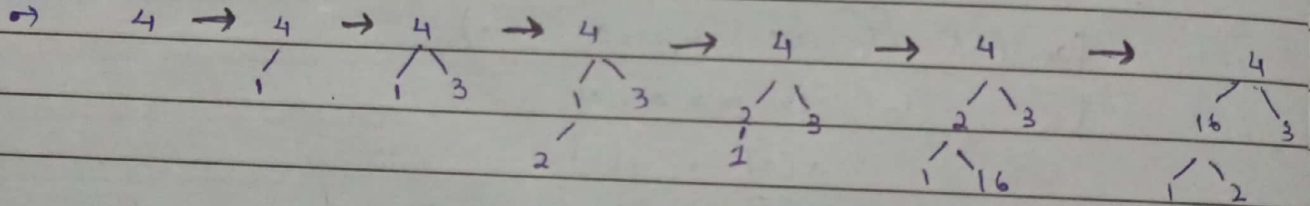 → 4 → 4 → 4 → 4 → 4 → 4 → 4
1 1 3 1 3 2 3 2 3 16 3
2 1 1 16 1 2